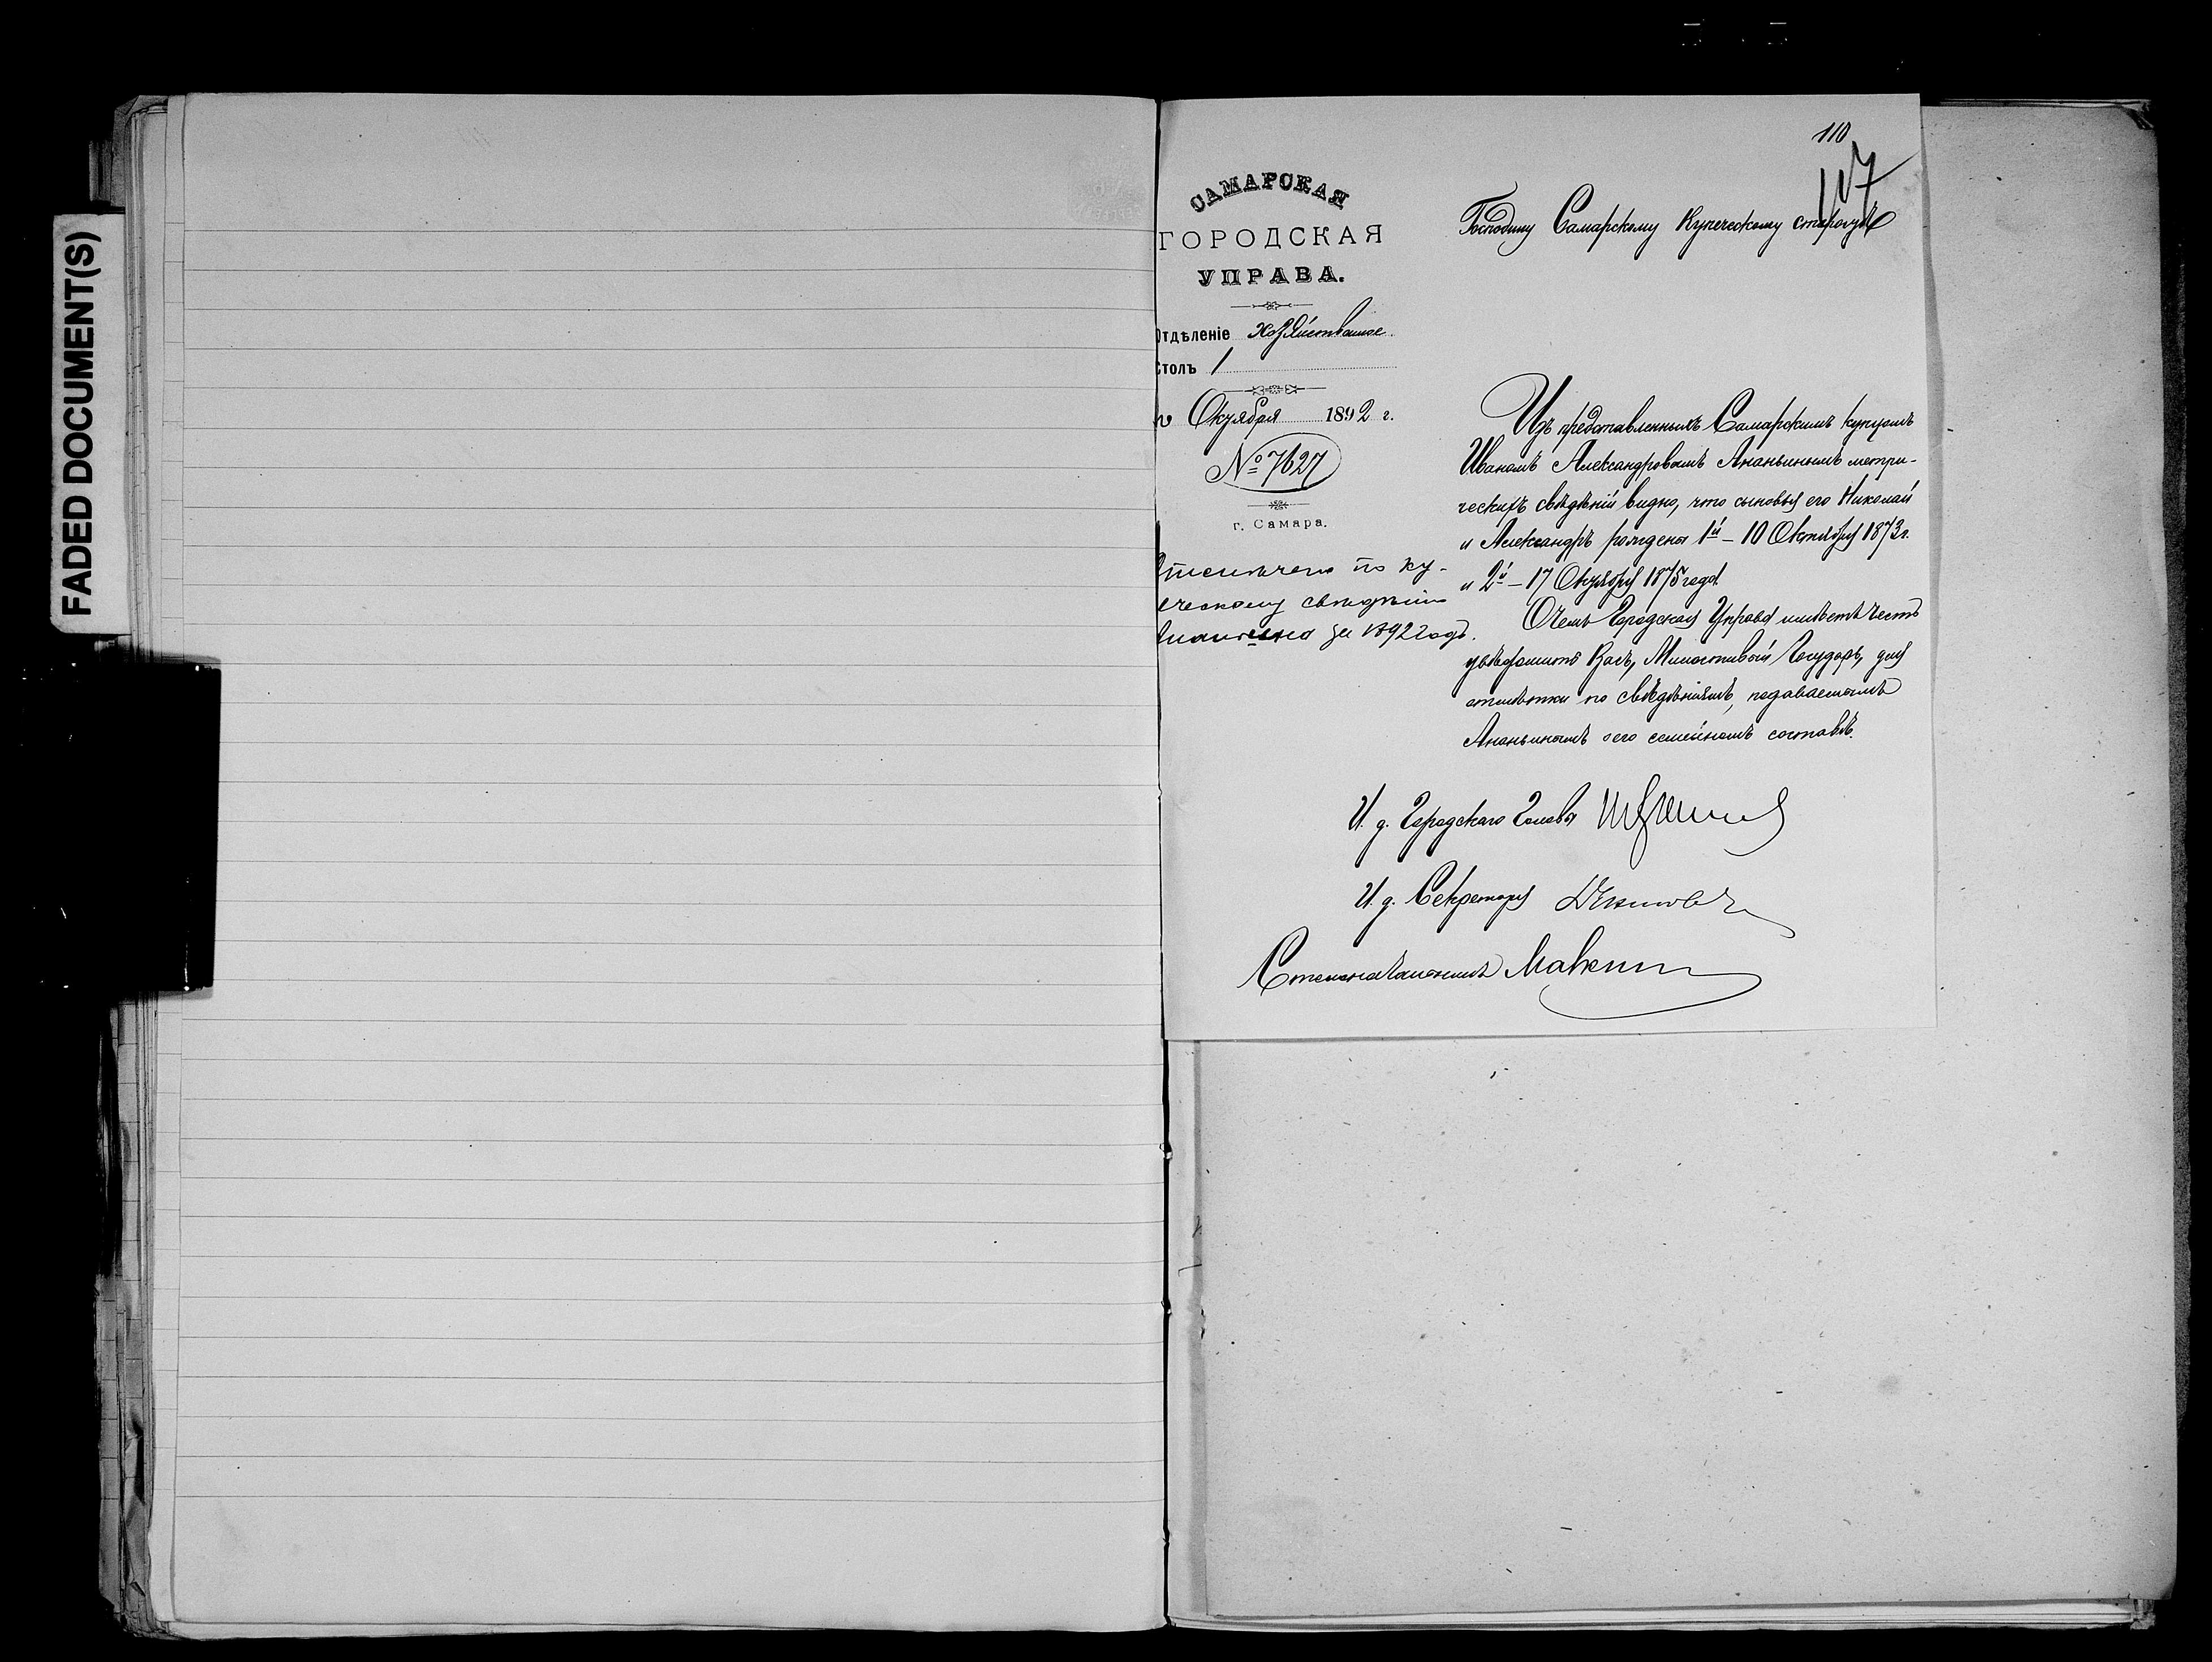 FADED DOCUMENT(S)
110
107
САМАРСКАЯ
ГОРОДСКАЯ
УПРАВА.
Отдѣленіе Хозяйственное.
Столъ 1
Октября 1892 г.
№ 7627
г. Самара.
по ку-
ческому свѣдѣнію
за 1892 годъ.
Господину Самарскому Купеческому старостѣ
Изъ представленныхъ Самарскимъ купцомъ
Иваномъ Александровымъ Ананьинымъ метри-
ческихъ свѣдѣній видно, что сыновья его Николай
и Александръ рождены 1й – 10 Октября 1873 г.
и 2й – 17 Октября 1875 года.
О чемъ Городская Управа имѣетъ честь
увѣдомить Васъ, Милостивый Государь, для
отмѣтки по свѣдѣніямъ, подаваемымъ
Ананьинымъ о его семейномъ составѣ.
И. д. Городскаго Головы
И. д. Секретаря
Столоначальникъ